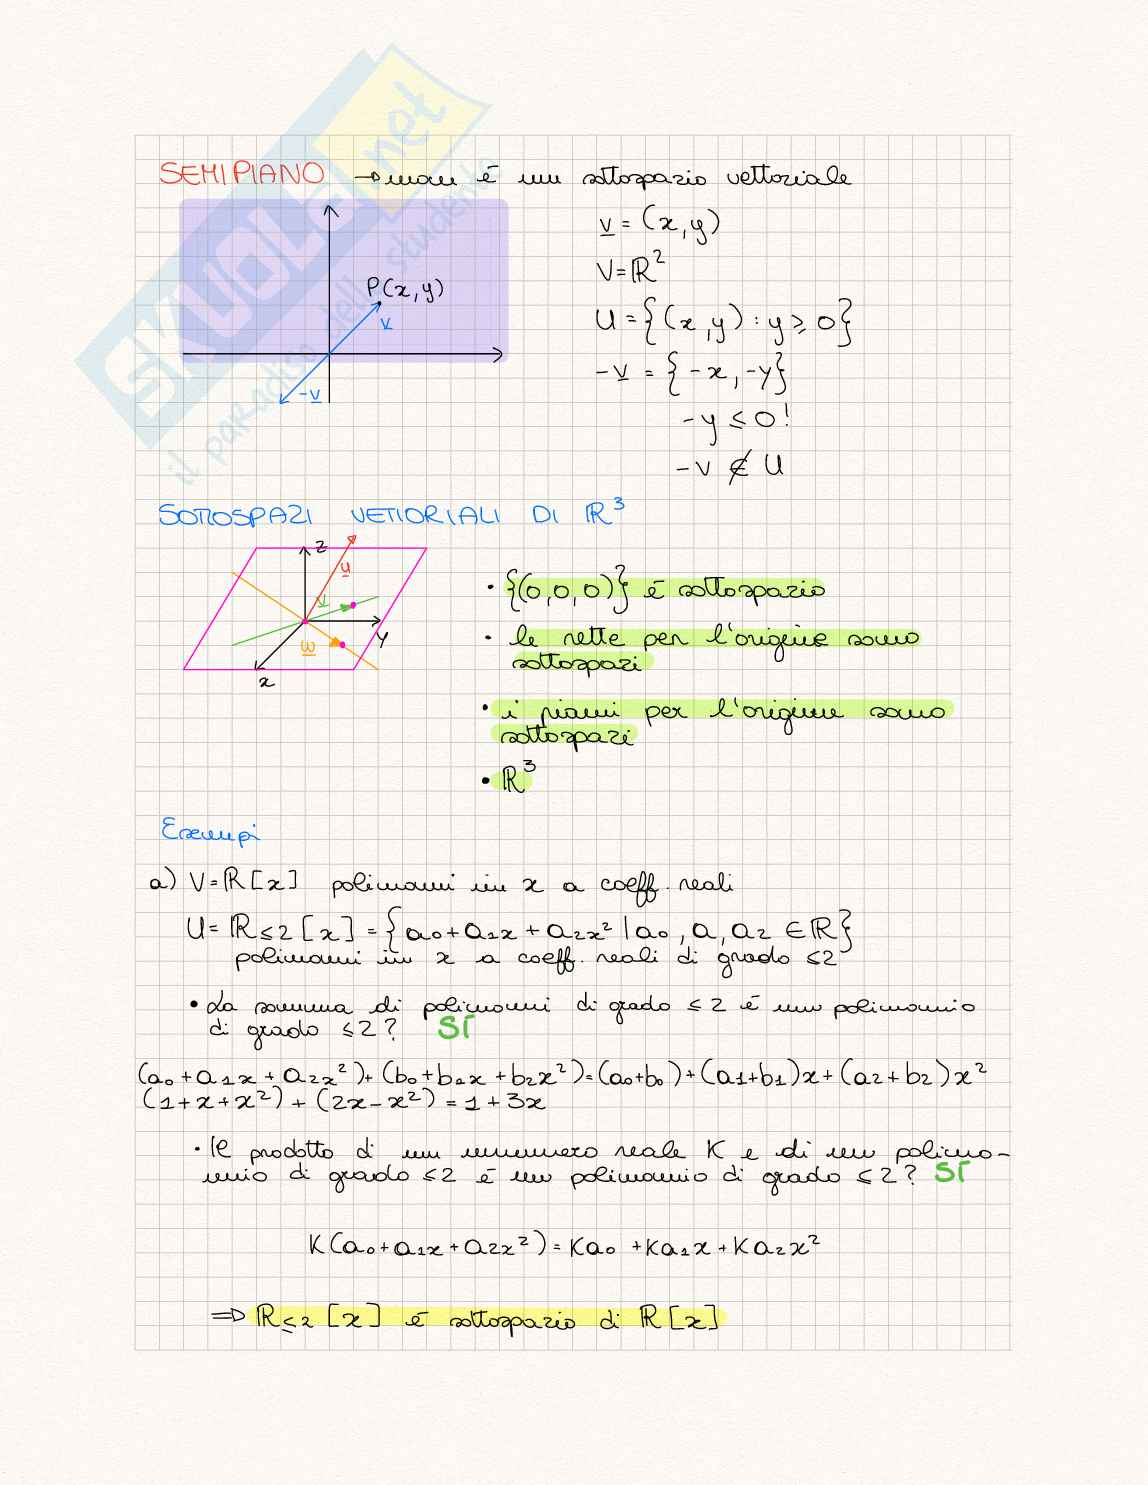 SKUOLA.net
il paradiso dello studente
SEMIPIANO → non è un sottospazio vettoriale
P(x,y)
v
-v
v = (x,y)
V=ℝ²
U = {(x,y) : y ≥ 0}
-v = {-x,-y}
-y ≤ 0!
-v ∉ U
SOTTOSPAZI VETTORIALI DI ℝ³
z
u
v
w
y
x
• {(0,0,0)} è sottospazio
• le rette per l'origine sono
sottospazi
• i piani per l'origine sono
sottospazi
• ℝ³
Esempi
a) V=ℝ[x] polinomi in x a coeff. reali
U= ℝ≤2[x] = {a₀+a₁x+a₂x² | a₀, a, a₂ ∈ ℝ}
polinomi in x a coeff. reali di grado ≤2
• La somma di polinomi di grado ≤ 2 è un polinomio
di grado ≤2? SÍ
(a₀+a₁x+a₂x²)+(b₀+b₁x+b₂x²)=(a₀+b₀)+(a₁+b₁)x+(a₂+b₂)x²
(1+x+x²)+(2x-x²)=1+3x
• Il prodotto di un numero reale K e di un polino-
mio di grado ≤2 è un polinomio di grado ≤2? SÍ
K(a₀+a₁x+a₂x²)=Ka₀+Ka₁x+Ka₂x²
⇒ ℝ≤2[x] è sottospazio di ℝ[x]